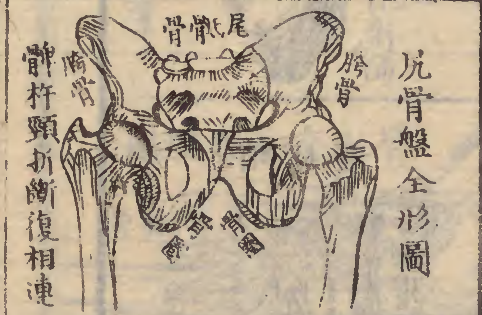 尻骨盤全形圖
胯骨
尾骶骨
胯骨
髀杵頸折斷復相連